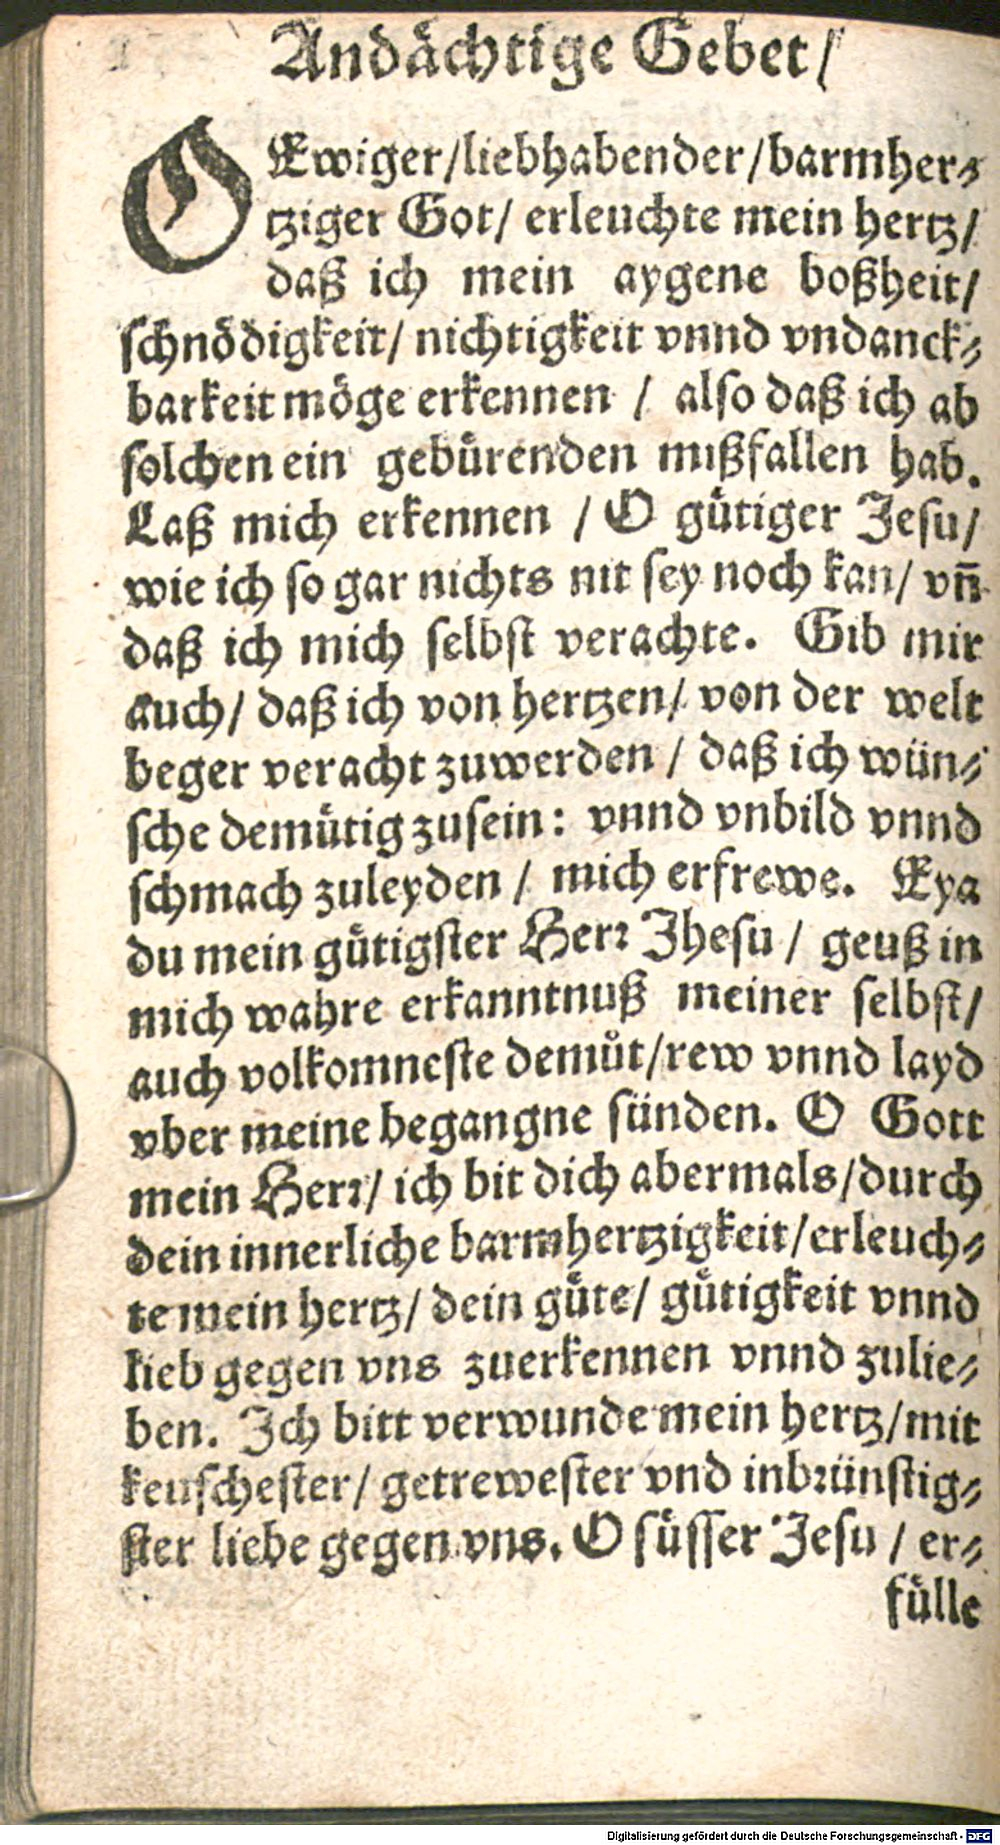 Andächtige Gebet/
O Ewiger/liebhabender/barmher⸗
tziger Got/ erleuchte mein hertz/
daß ich mein aygene boßheit/
schnödigkeit/ nichtigkeit vnnd vndanck⸗
barkeit möge erkennen / also daß ich ab
solchen ein gebürenden mißfallen hab.
Laß mich erkennen / O gütiger Jesu/
wie ich so gar nichts nit sey noch kan/ vñ
daß ich mich selbst verachte. Gib mir
auch/ daß ich von hertzen/ von der welt
beger veracht zuwerden / daß ich wün⸗
sche demütig zusein: vnnd vnbild vnnd
schmach zuleyden / mich erfrewe. Eya
du mein gütigster Herr Jhesu / geuß in
mich wahre erkanntnuß meiner selbst/
auch volkomneste demůt/rew vnnd layd
vber meine begangne sünden. O Gott
mein Herr/ ich bit dich abermals/durch
dein innerliche barmhertzigkeit/erleuch⸗
te mein hertz/ dein güte/ gütigkeit vnnd
lieb gegen vns zuerkennen vnnd zulie⸗
ben. Ich bitt verwunde mein hertz/mit
keuschester/ getrewester vnd inbrünstig⸗
ster liebe gegen vns. O süsser Jesu / er⸗
fülle
Digitalisierung gefördert durch die Deutsche Forschungsgemeinschaft - DFG